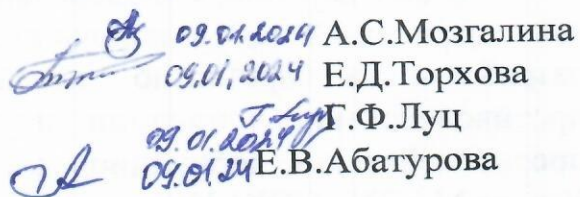 09.01.2024 А.С.Мозгалина
09.01.2024 Е.Д.Торхова
09.01.2024 Г.Ф.Луц
09.01.24 Е.В.Абатурова